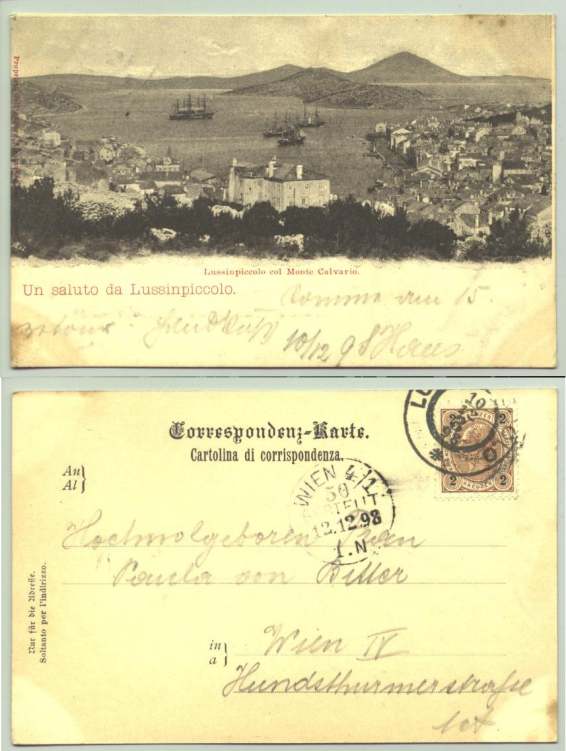 Lussinpiccolo col Monte Calvario.
Un saluto da Lussinpiccolo.
Komme am 15.
retour. Handkuß
10/12 98 Hans
Correspondenz-Karte.
Cartolina di corrispondenza.
An
Al
2 2
2 2
WIEN 4/1
50
BESTELLT
12.12.98
1.N
Hochwolgeboren Frau
Paula von Ritter
in
a
Wien IV
Hundsthurmerstraße
Nur für die Adresse.
Soltanto per l'indirizzo.